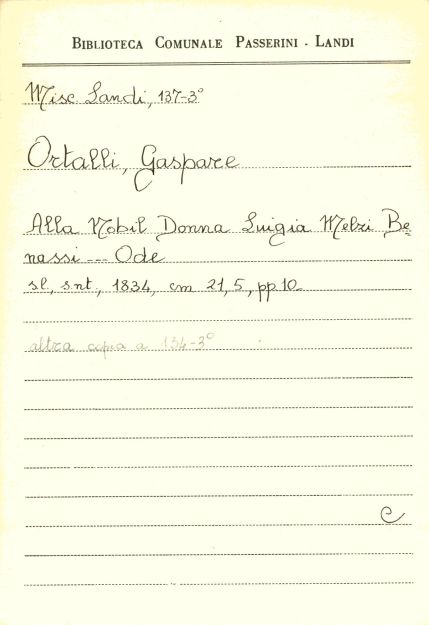 BIBLIOTECA COMUNALE PASSERINI - LANDI
Misc Landi, 137-3°
Ortalli, Gaspare
Alla Nobil Donna Luigia Melzi Be=
nassi --- Ode
sl, snt, 1834, cm 21,5, pp 10
altra copia a 134-3°
C